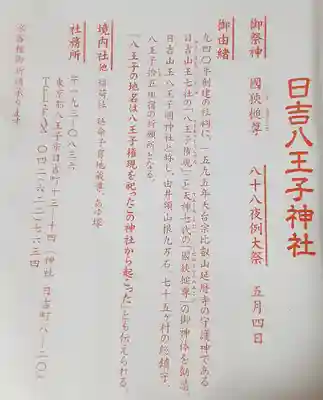 日吉八王子神社
御祭神　國狭槌尊　八十八夜例大祭　五月四日
御由緒
九四〇年創建の社祠に、一五九五年天台宗比叡山延暦寺の守護神である
日吉山王七社の「八王子権現」と天神七代の「國狭槌尊」の御神体を勧請、
日吉山王八王子國神社と称し、由井領山根九万石、七十五ヶ村の総鎮守、
八王子拾五組宿の祈願所となる。
「八王子の地名は八王子権現を祀ったこの神社から起こった」とも伝えられる。
境内社他　稲荷社　延命子育地蔵尊
社務所　〒一九三-〇八三六
東京都八王子市日吉町十三-十四（神社　日吉町八-二〇）
〇四二-六二二-七六三四